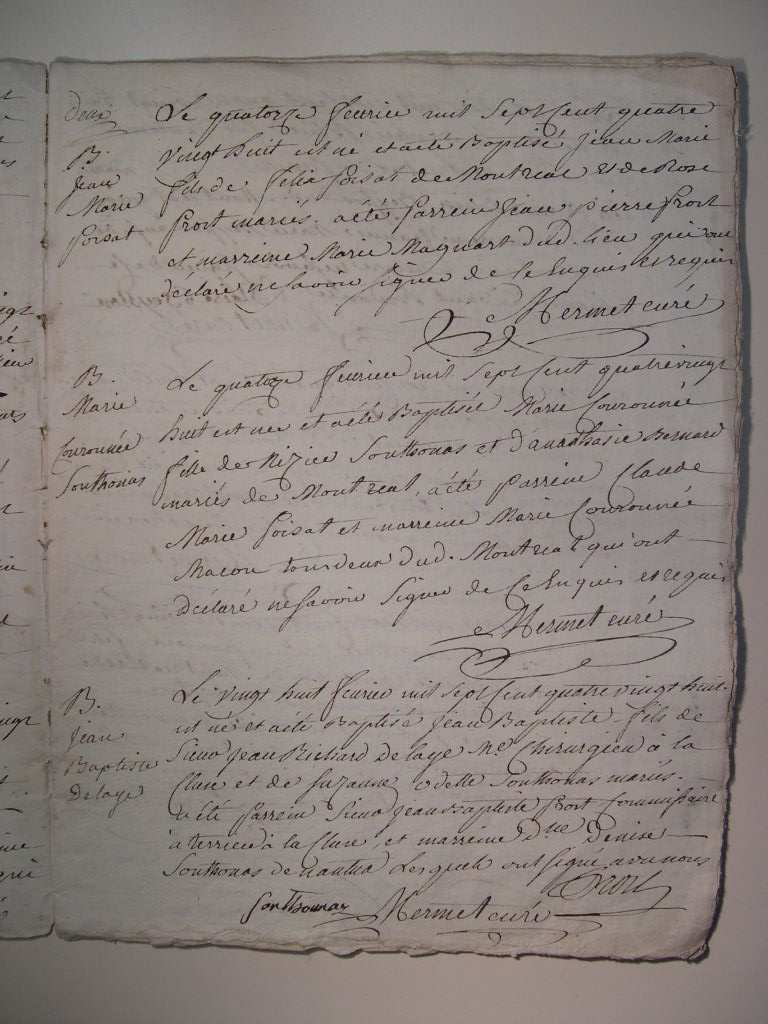 Deux
B.
Jean
Marie
poisat
Le quatorze fevrier mil sept cent quatre
vingt huit est né et a été Baptisé jean Marie
fils de felix poisat de Montreal et de Rose
prost mariés. a été parrein jean pierre prost
et marreine Marie Magnart dud. lieu qui ont
déclaré ne savoir signer de ce Enquis et requis
Hermet curé
B.
Marie
Couronnée
Sonthonas
Le quatorze fevrier mil sept cent quatre vingt
huit est née et a été Baptisée Marie Couronnée
fille de Nizier Sonthonas et d'anasthasie Bernard
mariés de Montreal, a été parrein Claude
Marie poisat et marreine Marie Couronnée
Macon tous deux dud. Montreal qui ont
déclaré ne savoir signer de ce Enquis et requis
Hermet curé
B.
jean
Baptiste
Delaye
Le vingt huit fevrier mil sept cent quatre vingt huit
est né et a été Baptisé jean Baptiste fils de
Sieur jean Richard Delaye Me. Chirurgien à la
Cluse et de Suzanne Odette Sonthonas mariés.
a été parrein Sieur jean Baptiste prost Commissaire
à terrier à la Cluse, et marreine dlle Denise
Sonthonas de nantua Lesquels ont signé avec nous
Prost
Sonthonax Hermet curé